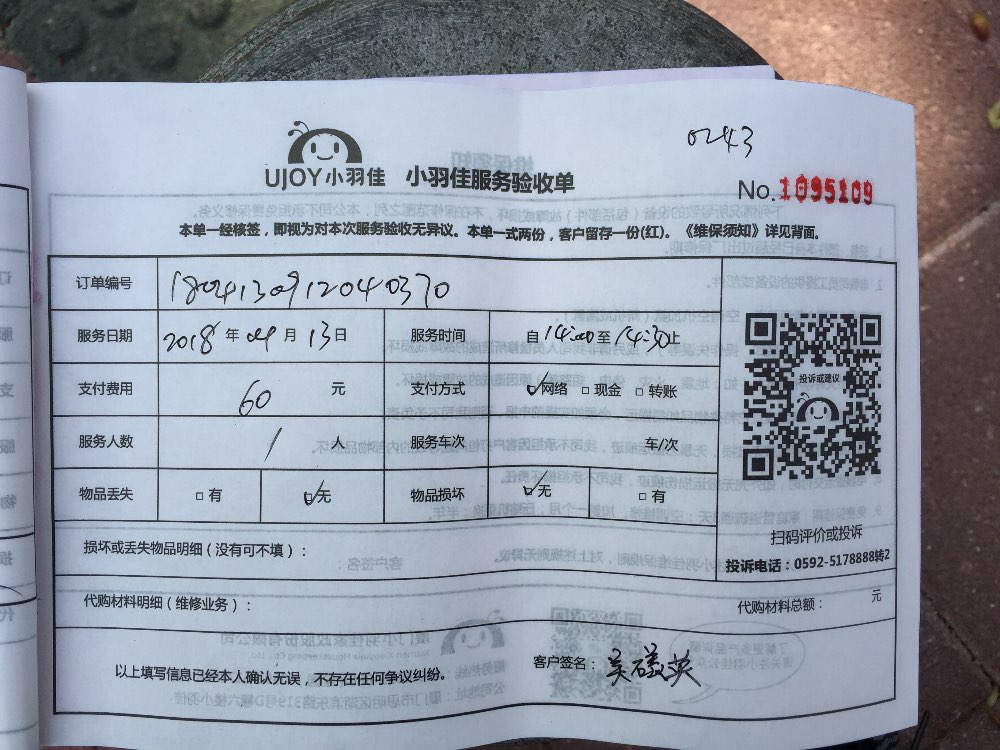 0243
UJOY小羽佳 小羽佳服务验收单
No.1095109
本单一经核签，即视为对本次服务验收无异议。本单一式两份，客户留存一份(红)。《维保须知》详见背面。
订单编号 180413091204037​0
服务日期 2018年04月13日 服务时间 自14:00至14:30止
支付费用 60 元 支付方式 ☑网络 □现金 □转账
服务人数 1 人 服务车次 车/次
物品丢失 □有 ☑无 物品损坏 ☑无 □有
投诉或建议
扫码评价或投诉
投诉电话：0592-5178888转2
损坏或丢失物品明细（没有可不填）：
代购材料明细（维修业务）： 代购材料总额： 元
以上填写信息已经本人确认无误，不存在任何争议纠纷。 客户签名：